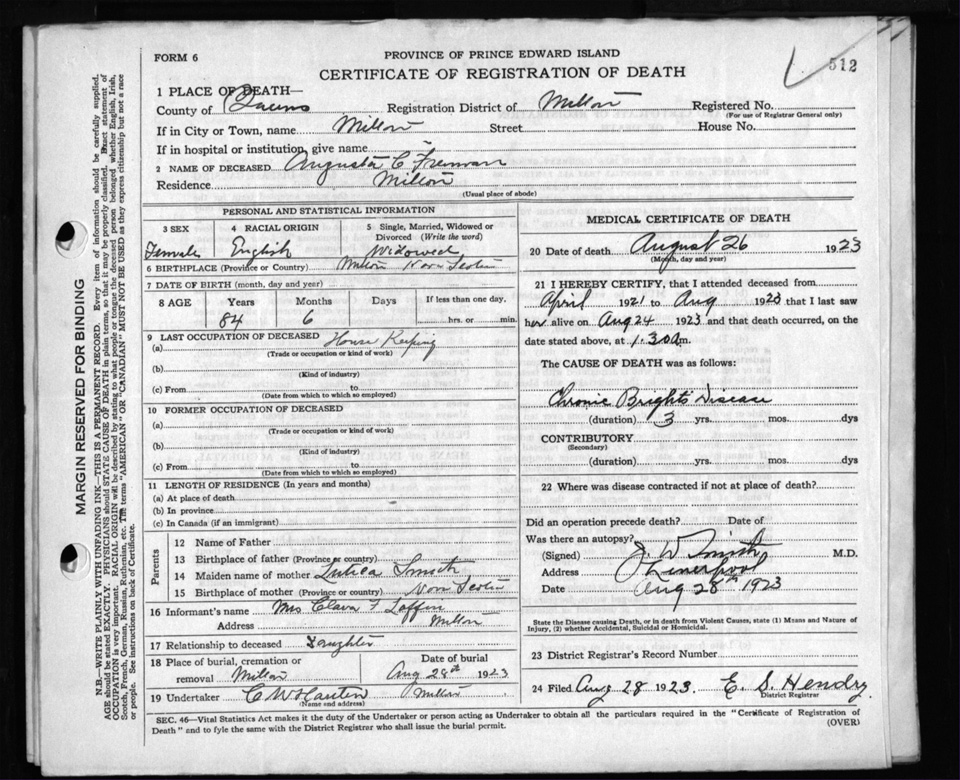 FORM 6
PROVINCE OF PRINCE EDWARD ISLAND
CERTIFICATE OF REGISTRATION OF DEATH
512
1 PLACE OF DEATH—
County of Queens Registration District of Milton Registered No.
(For use of Registrar General only)
If in City or Town, name Milton Street House No.
If in hospital or institution, give name
2 NAME OF DECEASED Augusta C Freeman
Residence Milton
(Usual place of abode)
PERSONAL AND STATISTICAL INFORMATION
3 SEX 4 RACIAL ORIGIN 5 Single, Married, Widowed or Divorced (Write the word)
Female English Widowed
6 BIRTHPLACE (Province or Country) Milton Nova Scotia
7 DATE OF BIRTH (month, day and year)
8 AGE Years Months Days If less than one day.
84 6 hrs. or min.
9 LAST OCCUPATION OF DECEASED
(a) House Keeping
(Trade or occupation or kind of work)
(b)
(Kind of industry)
(c) From to
(Date from which to which so employed)
10 FORMER OCCUPATION OF DECEASED
(a)
(Trade or occupation or kind of work)
(b)
(Kind of industry)
(c) From to
(Date from which to which so employed)
11 LENGTH OF RESIDENCE (In years and months)
(a) At place of death
(b) In province
(c) In Canada (if an immigrant)
Parents
12 Name of Father
13 Birthplace of father (Province or country)
14 Maiden name of mother Smith
15 Birthplace of mother (Province or country) Nova Scotia
16 Informant's name Mrs Clara F
Address Milton
17 Relationship to deceased Daughter
18 Place of burial, cremation or removal Milton
Date of burial
Aug 28th 1923
19 Undertaker C W Milton
(Name and address)
MEDICAL CERTIFICATE OF DEATH
20 Date of death August 26 1923
(Month, day and year)
21 I HEREBY CERTIFY, that I attended deceased from
April 1921 to Aug 1923 that I last saw
her alive on Aug 24 1923 and that death occurred, on the
date stated above, at 1.30 a m.
The CAUSE OF DEATH was as follows:
Chronic Brights Disease
(duration) 3 yrs. mos. dys
CONTRIBUTORY
(Secondary)
(duration) yrs. mos. dys
22 Where was disease contracted if not at place of death?
Did an operation precede death? Date of
Was there an autopsy?
(Signed) J. W Smith M.D.
Address Liverpool
Date Aug 28th 1923
State the Disease causing Death, or in death from Violent Causes, state (1) Means and Nature of
Injury, (2) whether Accidental, Suicidal or Homicidal.
23 District Registrar's Record Number
24 Filed Aug 28 1923. E. S. Hendry
District Registrar
SEC. 46—Vital Statistics Act makes it the duty of the Undertaker or person acting as Undertaker to obtain all the particulars required in the "Certificate of Registration of
Death" and to fyle the same with the District Registrar who shall issue the burial permit.
(OVER)
MARGIN RESERVED FOR BINDING
N.B.—WRITE PLAINLY WITH UNFADING INK—THIS IS A PERMANENT RECORD. Every item of information should be carefully supplied.
AGE should be stated EXACTLY. PHYSICIANS should STATE CAUSE OF DEATH in plain terms, so that it may be properly classified. Exact statement of
OCCUPATION is very important. RACIAL ORIGIN will be described by stating to what people or tongue the deceased person belonged, whether English, Irish,
Scotch, French, German, Russian, Ruthenian, etc. The terms "AMERICAN" OR "CANADIAN" MUST NOT BE USED as they express citizenship but not a race
or people. See instructions on back of Certificate.